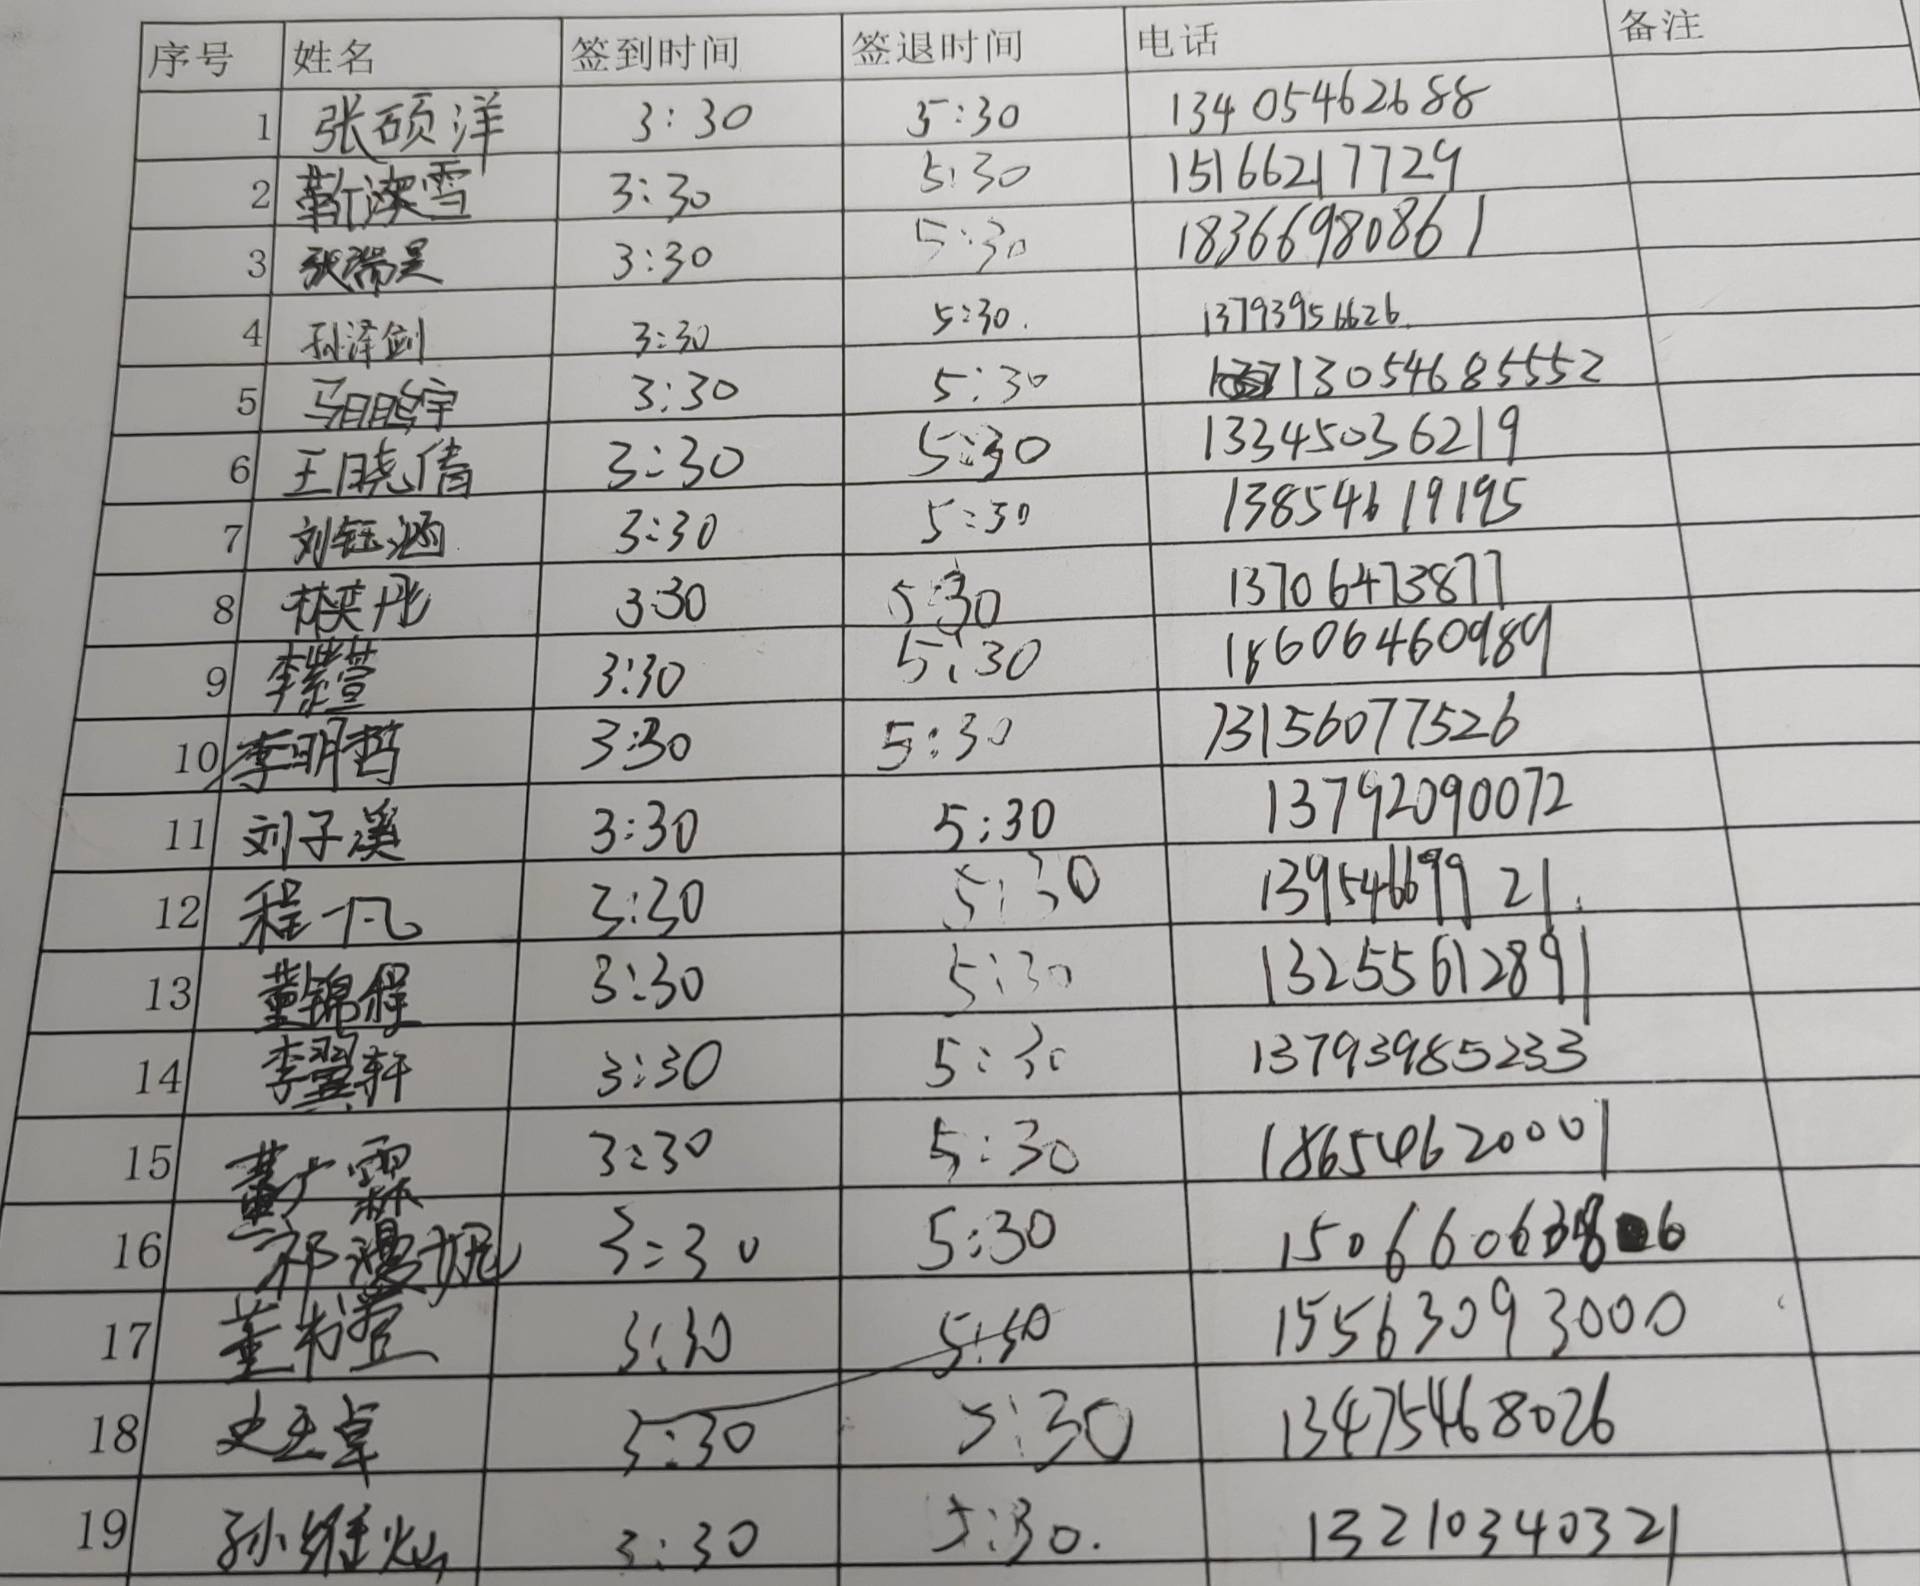 序号 姓名 签到时间 签退时间 电话 备注
1 张硕洋 3:30 5:30 13405462688
2 3:30 5:30 15166217729
3 张瑞昊 3:30 5:30 18366980861
4 孙泽剑 3:30 5:30. 13793956626.
5 3:30 5:30 13054685552
6 王晓倩 3:30 5:30 13345036219
7 刘钰涵 3:30 5:30 13854619195
8 林奕彤 3:30 5:30 13706473877
9 李紫萱 3:30 5:30 18606460989
10 李明哲 3:30 5:30 13156077526
11 刘子溪 3:30 5:30 13792090072
12 程一凡 3:30 5:30 13954669921.
13 董锦程 3:30 5:30 13255612891
14 李翼轩 3:30 5:30 13793985233
15 董广霖 3:30 5:30 18654620001
16 祁漫妮 3:30 5:30
17 3:30 5:30 15563093000
18 史玉卓 3:30 5:30 13475468026
19 孙维灿 3:30 5:30. 13210340321